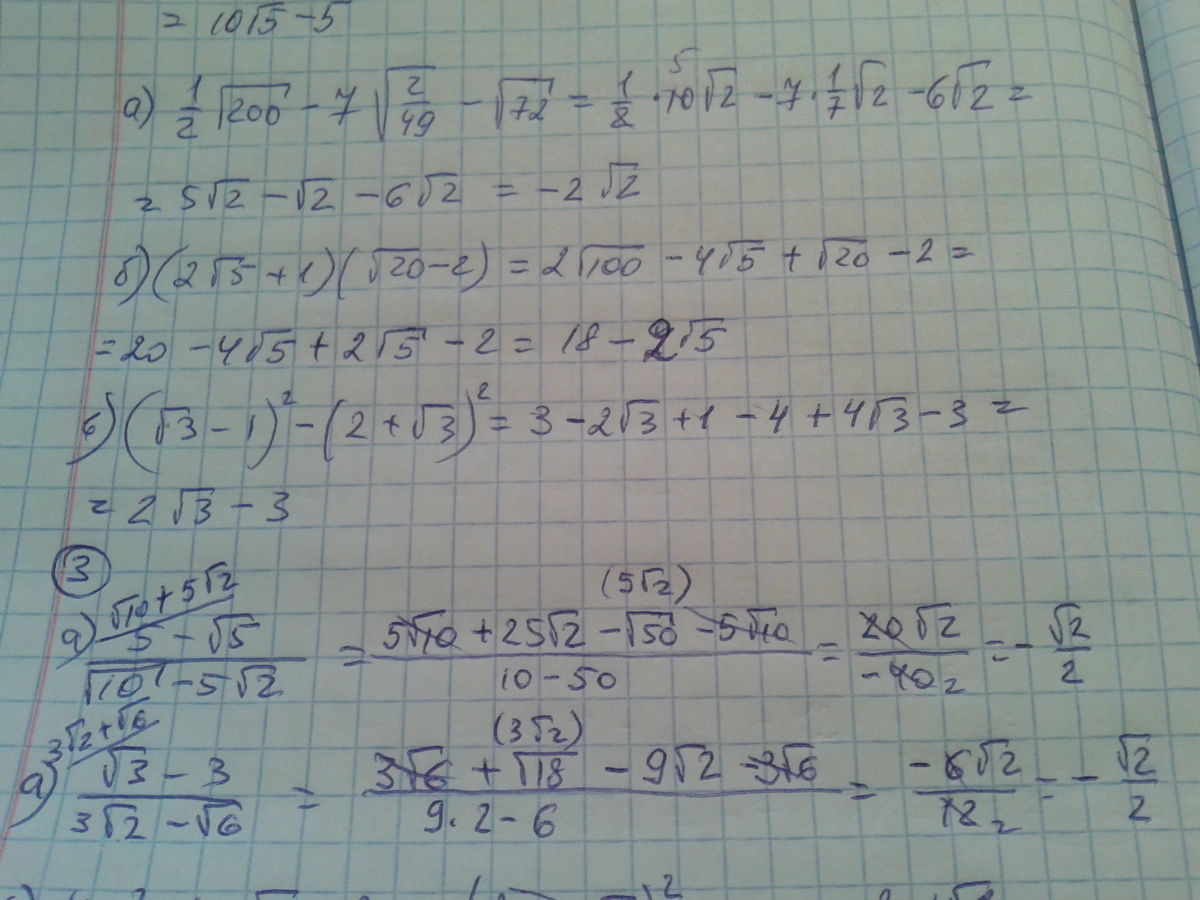 = 10√5 - 5
а) 1/2 √200 - 7 √(2/49) - √72 = 1/2 · 10 5 √2 - 7 · 1/7 √2 - 6√2 =
= 5√2 - √2 - 6√2 = -2√2
б) (2√5 + 1)(√20 - 2) = 2√100 - 4√5 + √20 - 2 =
= 20 - 4√5 + 2√5 - 2 = 18 - 2√5
в) (√3 - 1)² - (2 + √3)² = 3 - 2√3 + 1 - 4 + 4√3 - 3 =
= 2√3 - 3
③
√10 + 5√2 (5√2)
а) (5 - √5)/(√10 - 5√2) = (5√10 + 25√2 - √50 - 5√10)/(10 - 50) = 20√2/(-40 2) = - √2/2
3√2 + √6 (3√2)
а) (√3 - 3)/(3√2 - √6) = (3√6 + √18 - 9√2 - 3√6)/(9 · 2 - 6) = (-6√2)/(12 2) = - √2/2